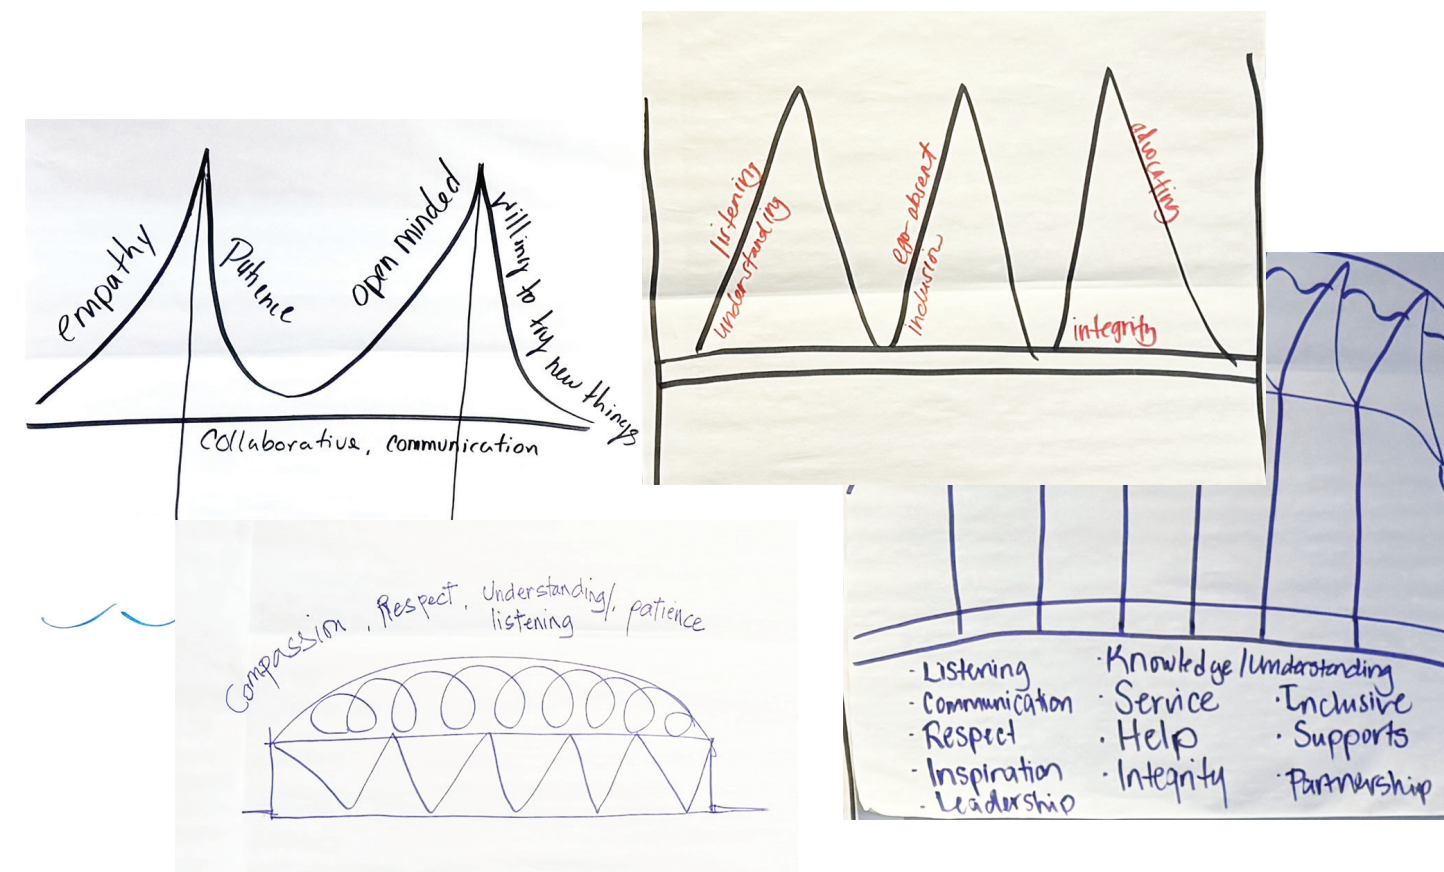 empathy
Patience
open minded
willing to try new things
Collaborative, communication
listening
understanding
ego-absent
inclusion
integrity
advocating
Compassion, Respect, Understanding/, patience
listening
· Listening
· Communication
· Respect
· Inspiration
· Leadership
· Knowledge/Understanding
· Service
· Help
· Integrity
· Inclusive
· Supports
· Partnership